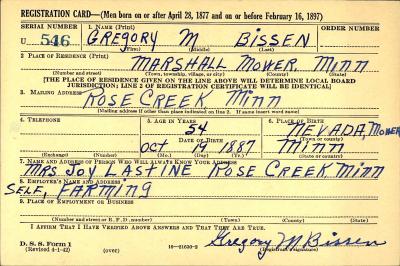 REGISTRATION CARD—(Men born on or after April 28, 1877 and on or before February 16, 1897)
SERIAL NUMBER
1. NAME (Print)
ORDER NUMBER
U 546
GREGORY M BISSEN
(First) (Middle) (Last)
2. PLACE OF RESIDENCE (Print)
MARSHALL MOWER MINN
(Number and street) (Town, township, village, or city) (County) (State)
[THE PLACE OF RESIDENCE GIVEN ON THE LINE ABOVE WILL DETERMINE LOCAL BOARD
JURISDICTION; LINE 2 OF REGISTRATION CERTIFICATE WILL BE IDENTICAL]
3. MAILING ADDRESS
ROSE CREEK MINN
[Mailing address if other than place indicated on line 2. If same insert word same]
4. TELEPHONE
5. AGE IN YEARS
54
6. PLACE OF BIRTH
NEVADA, MOWER
DATE OF BIRTH
(Town or county)
OCT 19 1887
MINN
(Exchange) (Number) (Mo.) (Day) (Yr.) (State or country)
7. NAME AND ADDRESS OF PERSON WHO WILL ALWAYS KNOW YOUR ADDRESS
MRS JOY LASTINE ROSE CREEK MINN
8. EMPLOYER'S NAME AND ADDRESS
SELF, FARMING
9. PLACE OF EMPLOYMENT OR BUSINESS
(Number and street or R. F. D. number) (Town) (County) (State)
I AFFIRM THAT I HAVE VERIFIED ABOVE ANSWERS AND THAT THEY ARE TRUE.
D. S. S. Form 1
(Revised 4-1-42) (over) 16—21630-2
Gregory M Bissen
(Registrant's signature)